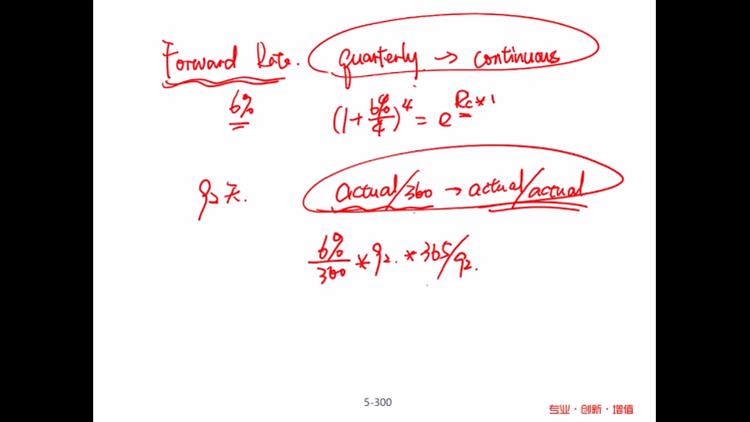 Forward Rate. quarterly → continuous
6% (1+6%/4)^4 = e^(Rc*1)
92天. actual/360 → actual/actual
6%/360 * 92. * 365/92.
5-300
专业·创新·增值